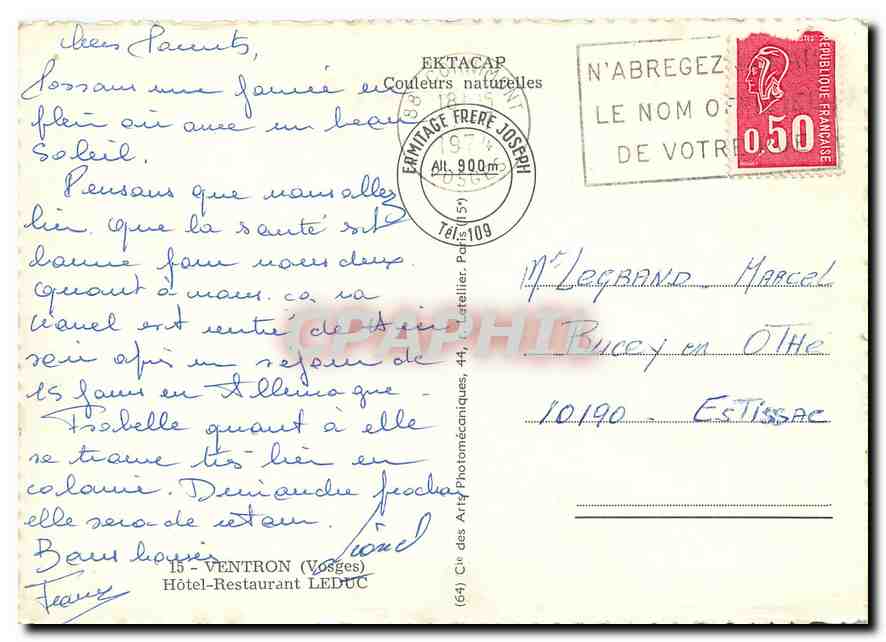 Chers Parents,
Passons une journée en
plein air avec un beau
Soleil.
Pensons que vous allez
bien. Que la santé est
bonne pour vous deux.
Quant à nous. ça va
Lionel est rentré de
après un séjour de
15 jours en Allemagne -
Isabelle quant à elle
se trouve très bien en
colonie. Dimanche prochain
elle sera de retour.
Bons baisers
Lionel
15 - VENTRON (Vosges)
Hôtel-Restaurant LEDUC
EKTACAP
Couleurs naturelles
88 CORNIMONT
1974
VOSGES
ERMITAGE FRERE JOSEPH
Alt. 900m
Tél. 109
N'ABREGEZ
LE NOM
DE VOTRE
REPUBLIQUE FRANÇAISE
0,50
(64) Cie des Arts Photomécaniques, 44, r. Letellier. Paris (15e)
Mr LEGRAND MARCEL
BUCEY en OTHE
10190 - ESTISSAC
CPAPHIL